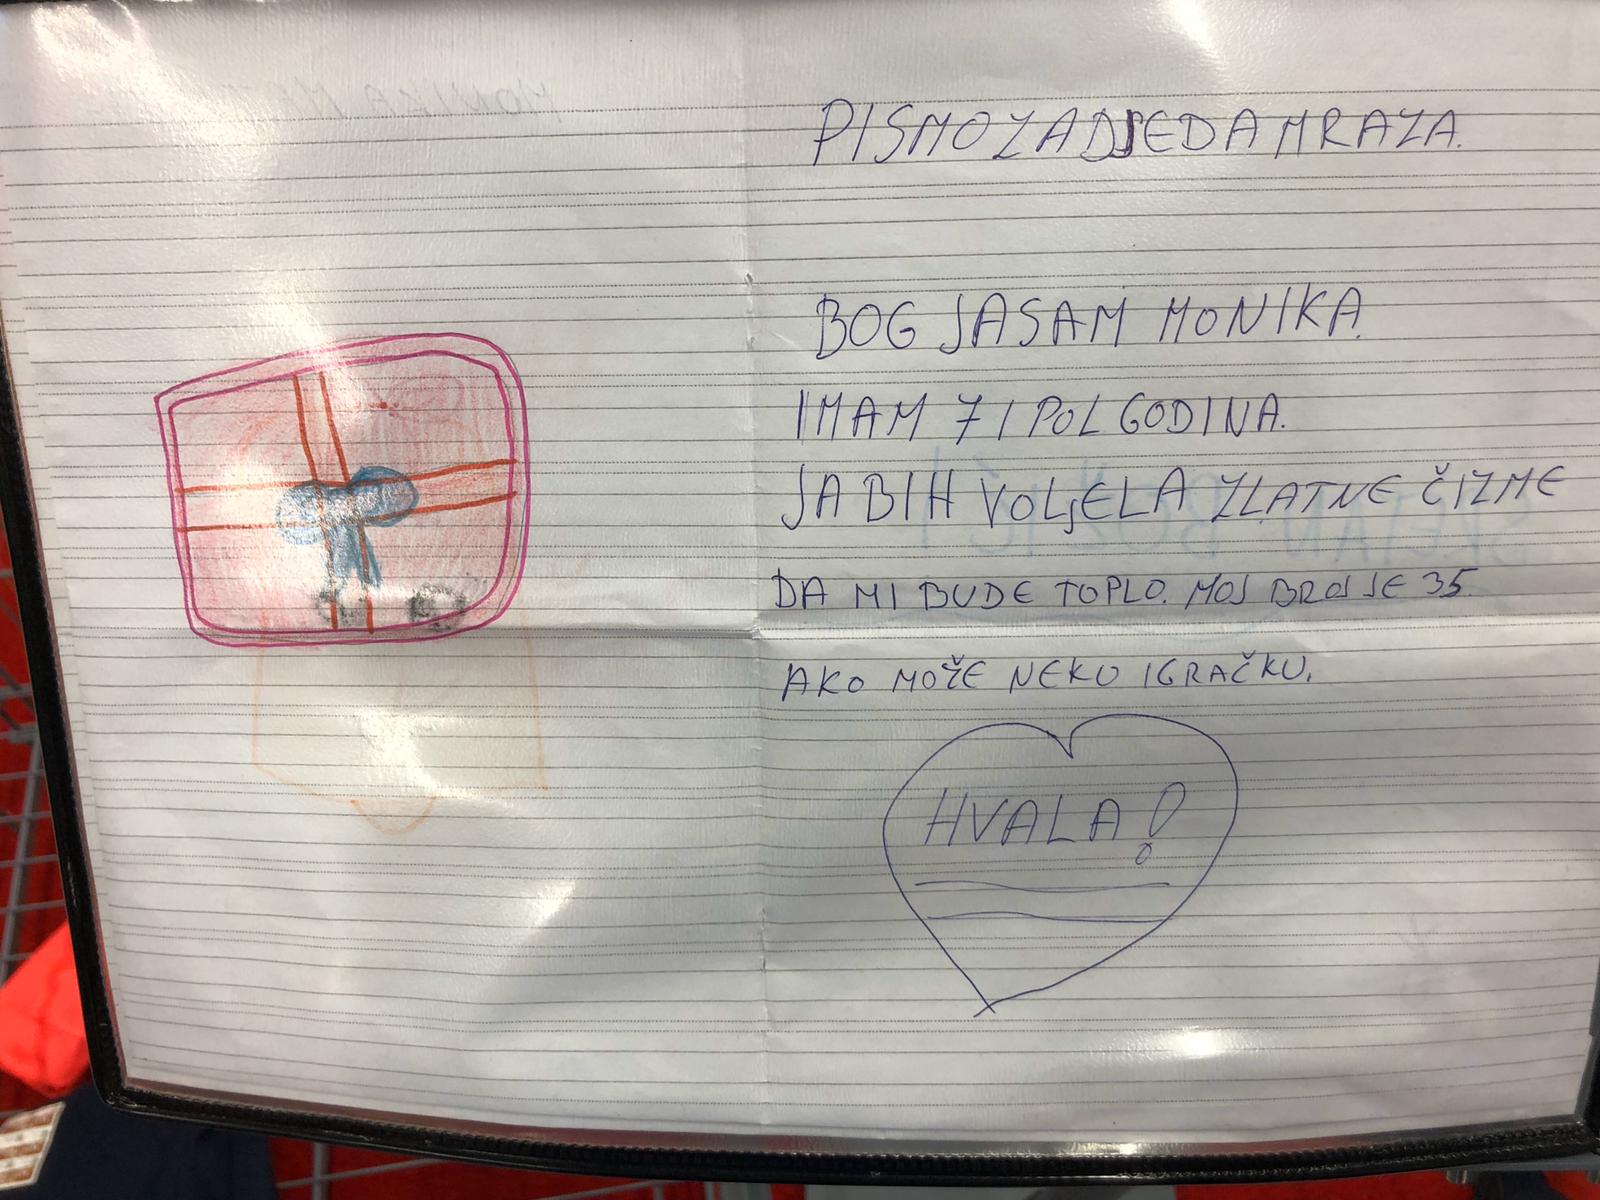 PISMO ZA DJEDA MRAZA.
BOG JA SAM MONIKA.
IMAM 7 I POL GODINA.
JA BIH VOLJELA ZLATNE ČIZME
DA MI BUDE TOPLO. MOJ BROJ JE 35.
AKO MOŽE NEKU IGRAČKU.
HVALA!